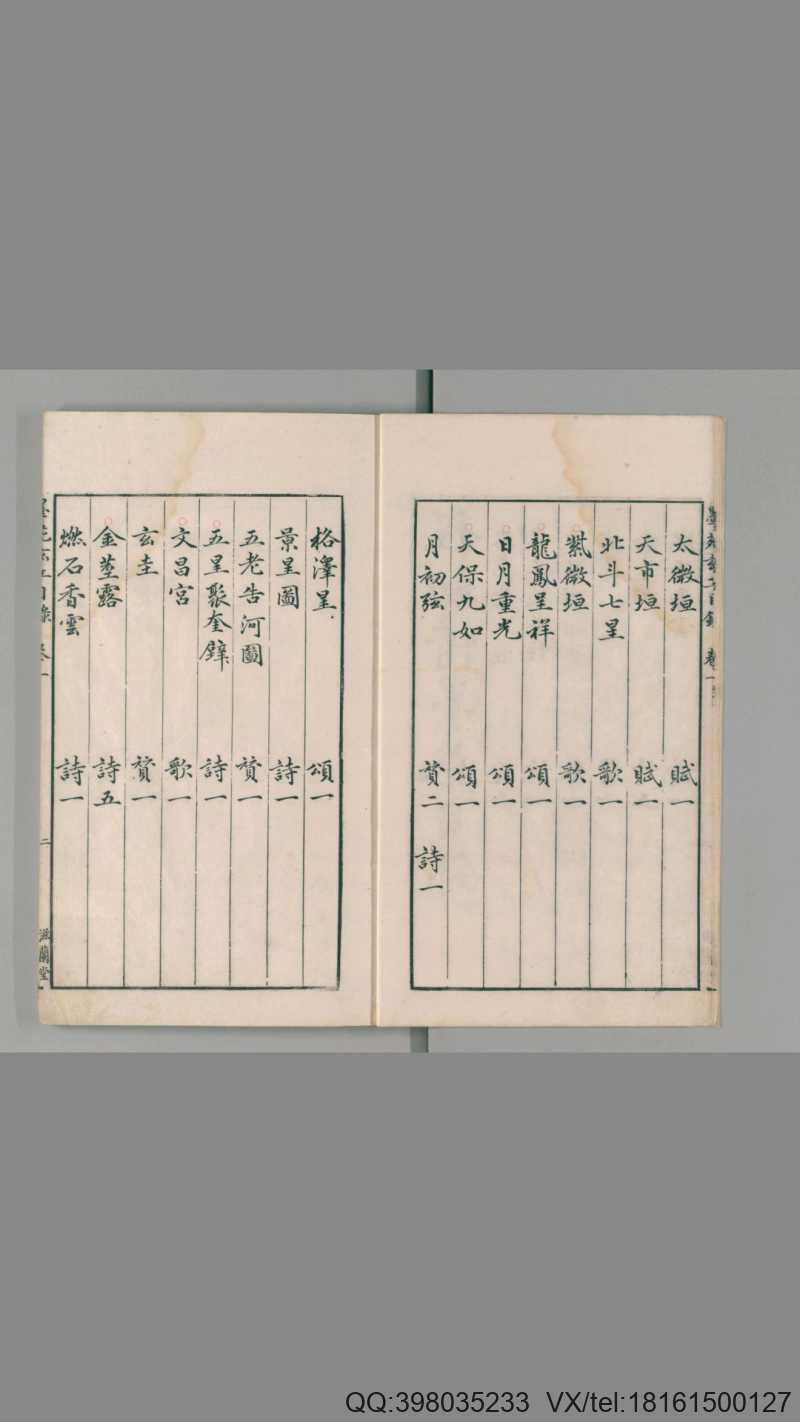 太微垣 賦一
天市垣 賦一
北斗七星 歌一
紫微垣 歌一
龍鳳呈祥 頌一
日月重光 頌一
天保九如 頌一
月初弦 贊二 詩一
格澤星 頌一
景星圖 詩一
五老告河圖 贊一
五星聚奎壁 詩一
文昌宮 歌一
玄圭 贊一
金莖露 詩五
燃石香雲 詩一
目錄 卷一 二 滋蘭堂
QQ:398035233 VX/tel:18161500127